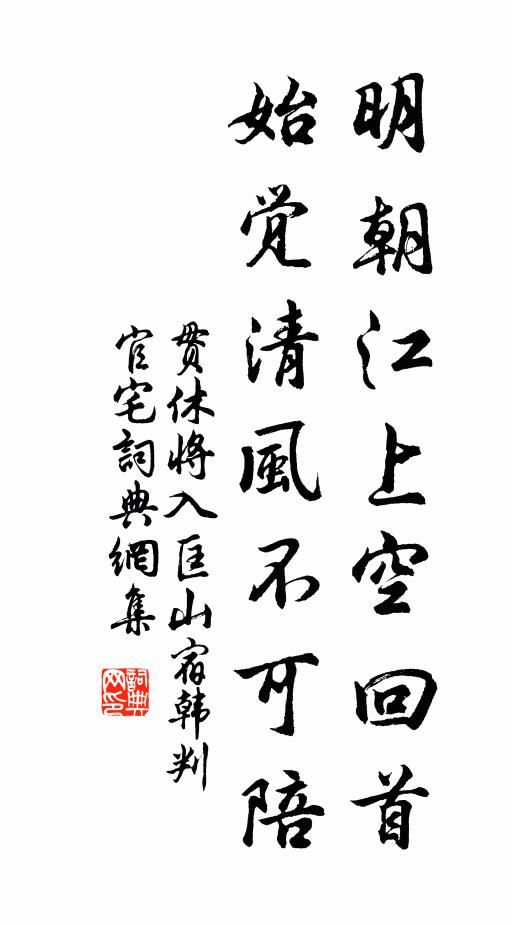 明朝江上空回首
始觉清風不可陪
贯休将入匡山宿韩判
官宅詞典網集
詞典网印